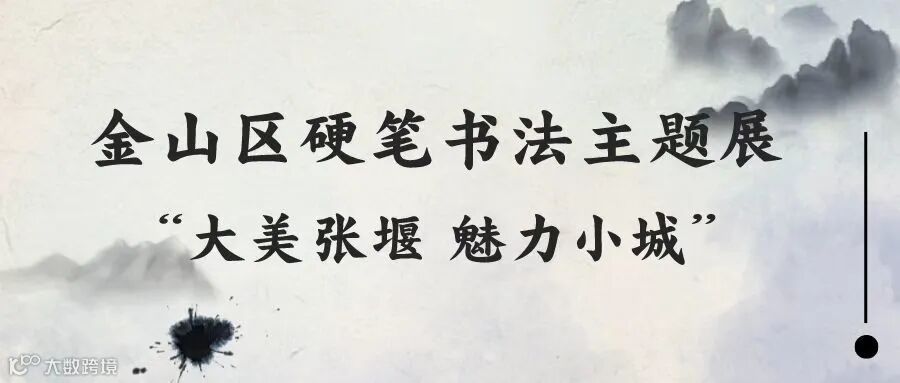 金山区硬笔书法主题展
“大美张堰 魅力小城”
大数跨境